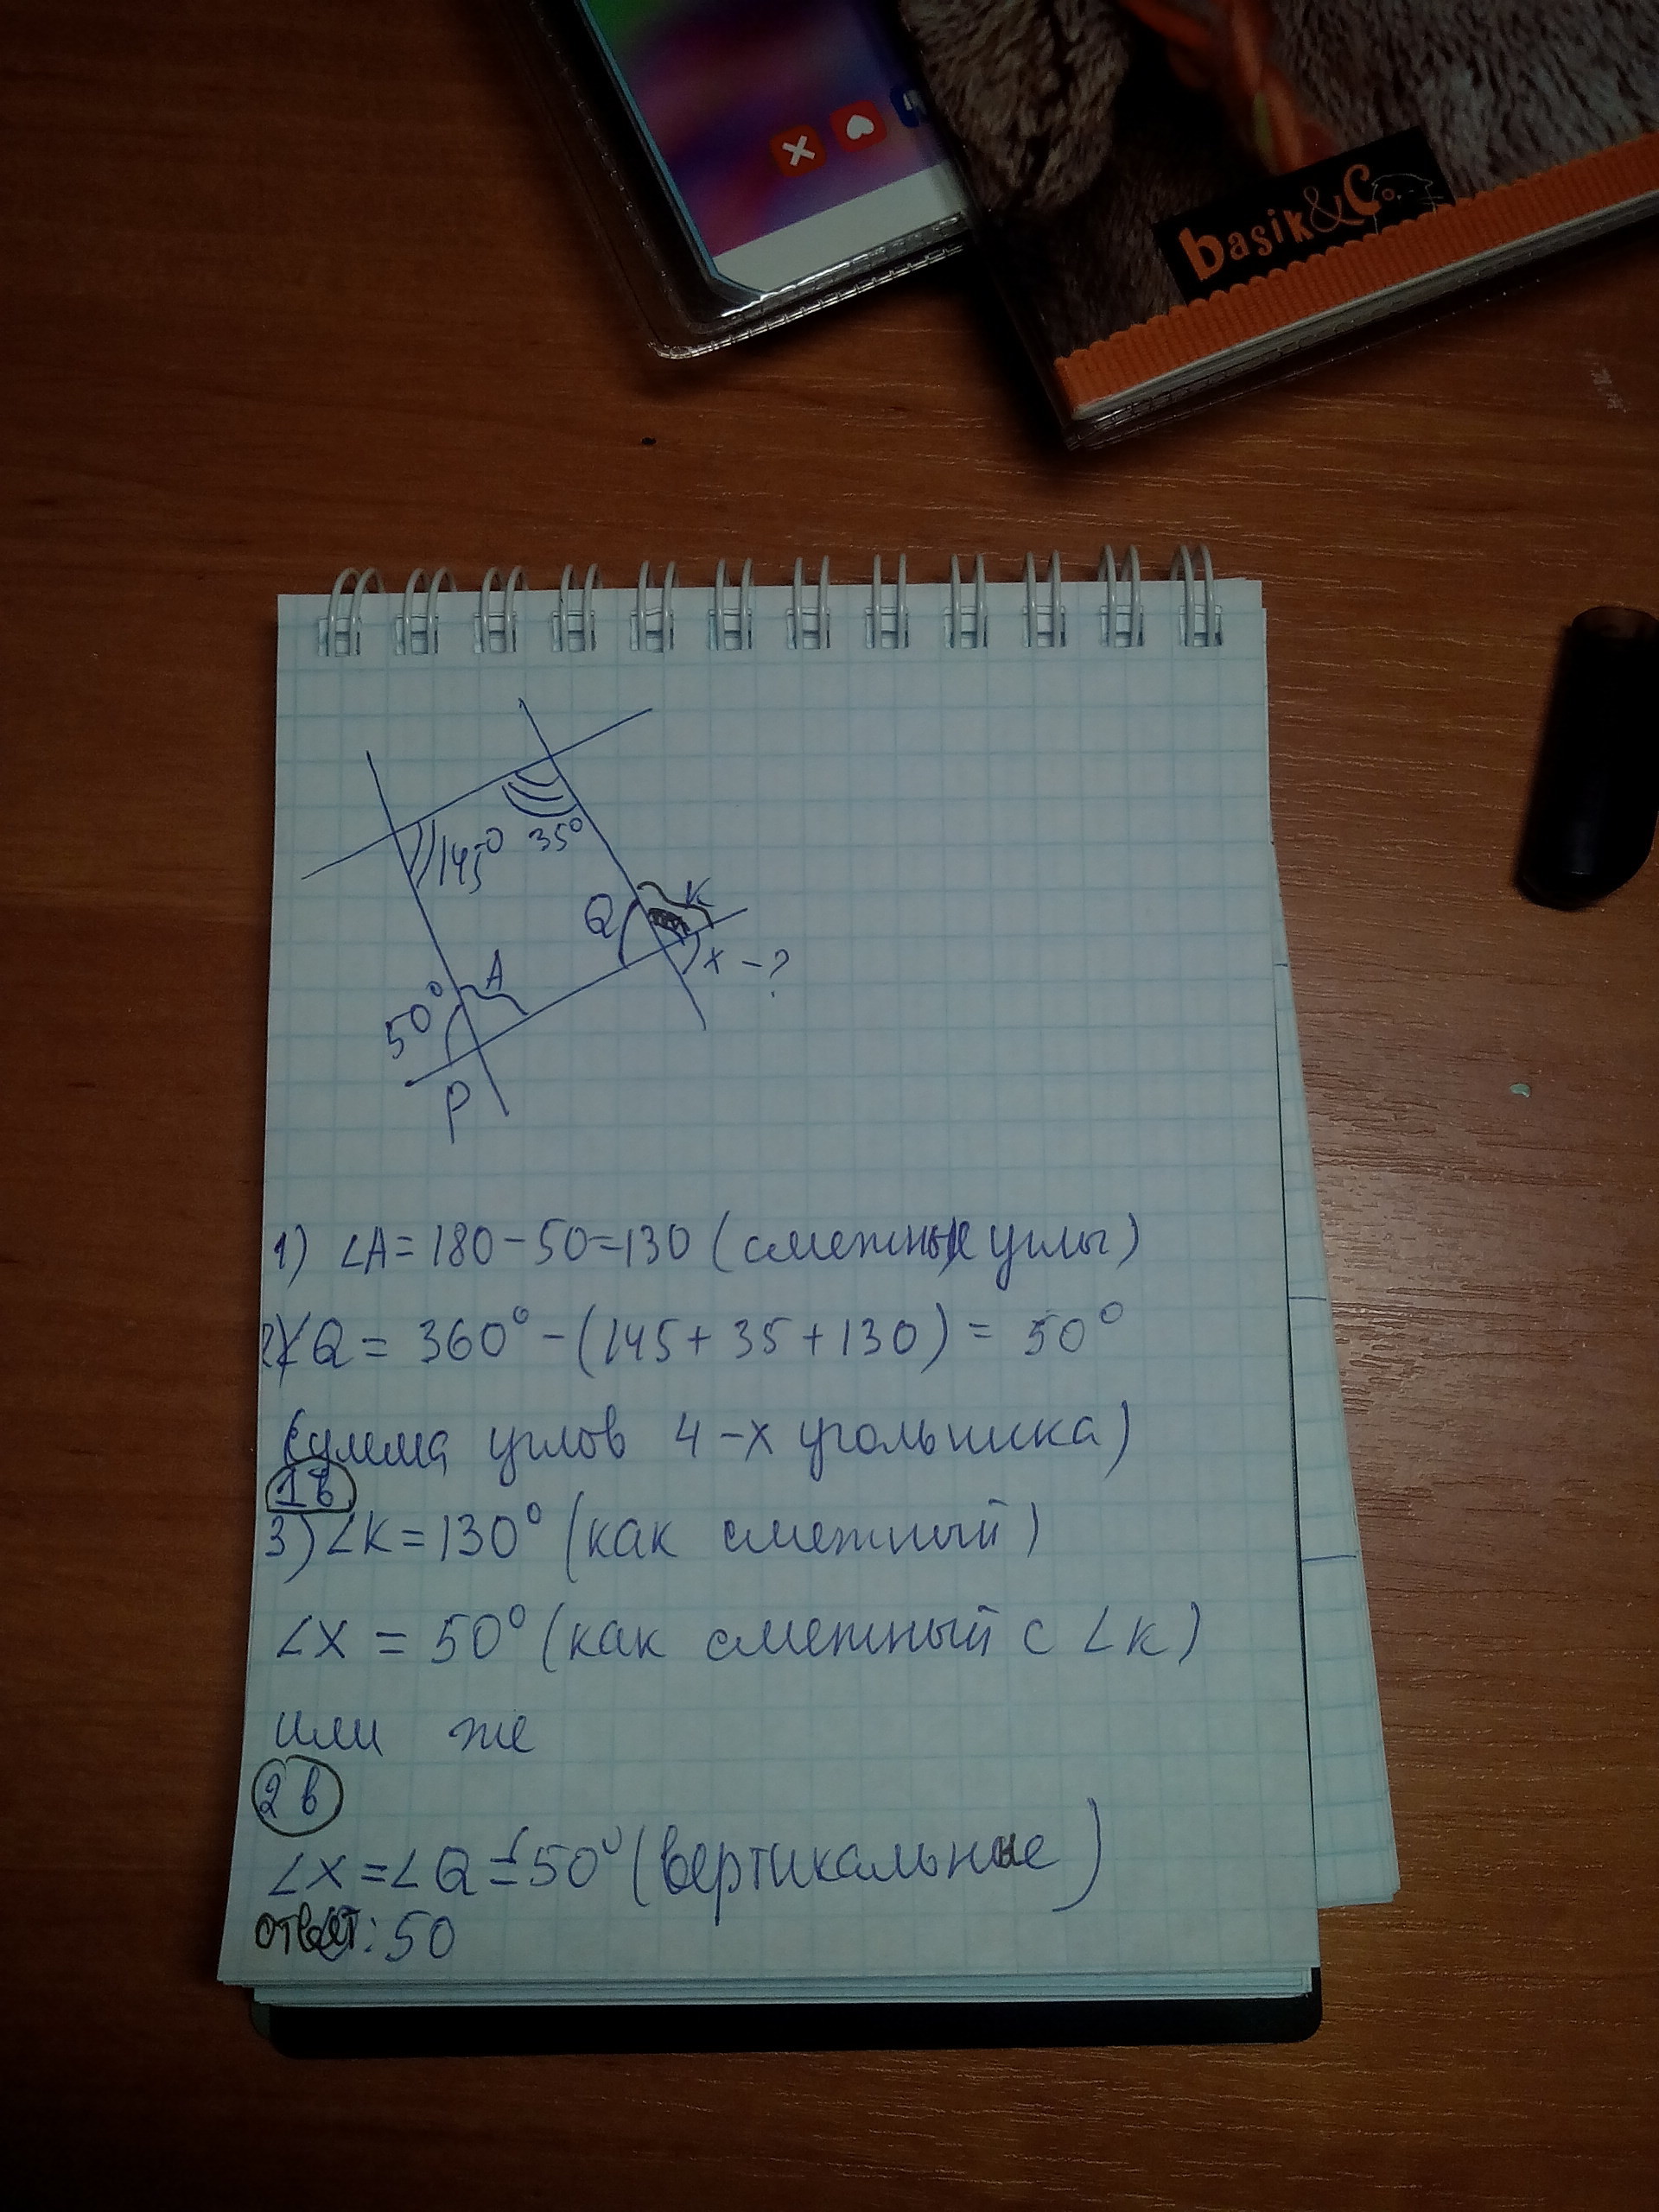 basik&Co.
145° 35°
Q K
x - ?
50° A
P
1) ∠A = 180 - 50 = 130 (смежные углы)
2) ∠Q = 360° - (145 + 35 + 130) = 50°
(сумма углов 4-х угольника)
1в
3) ∠K = 130° (как смежный)
∠X = 50° (как смежный с ∠K)
или же
2в
∠X = ∠Q = 50° (вертикальные)
ответ: 50